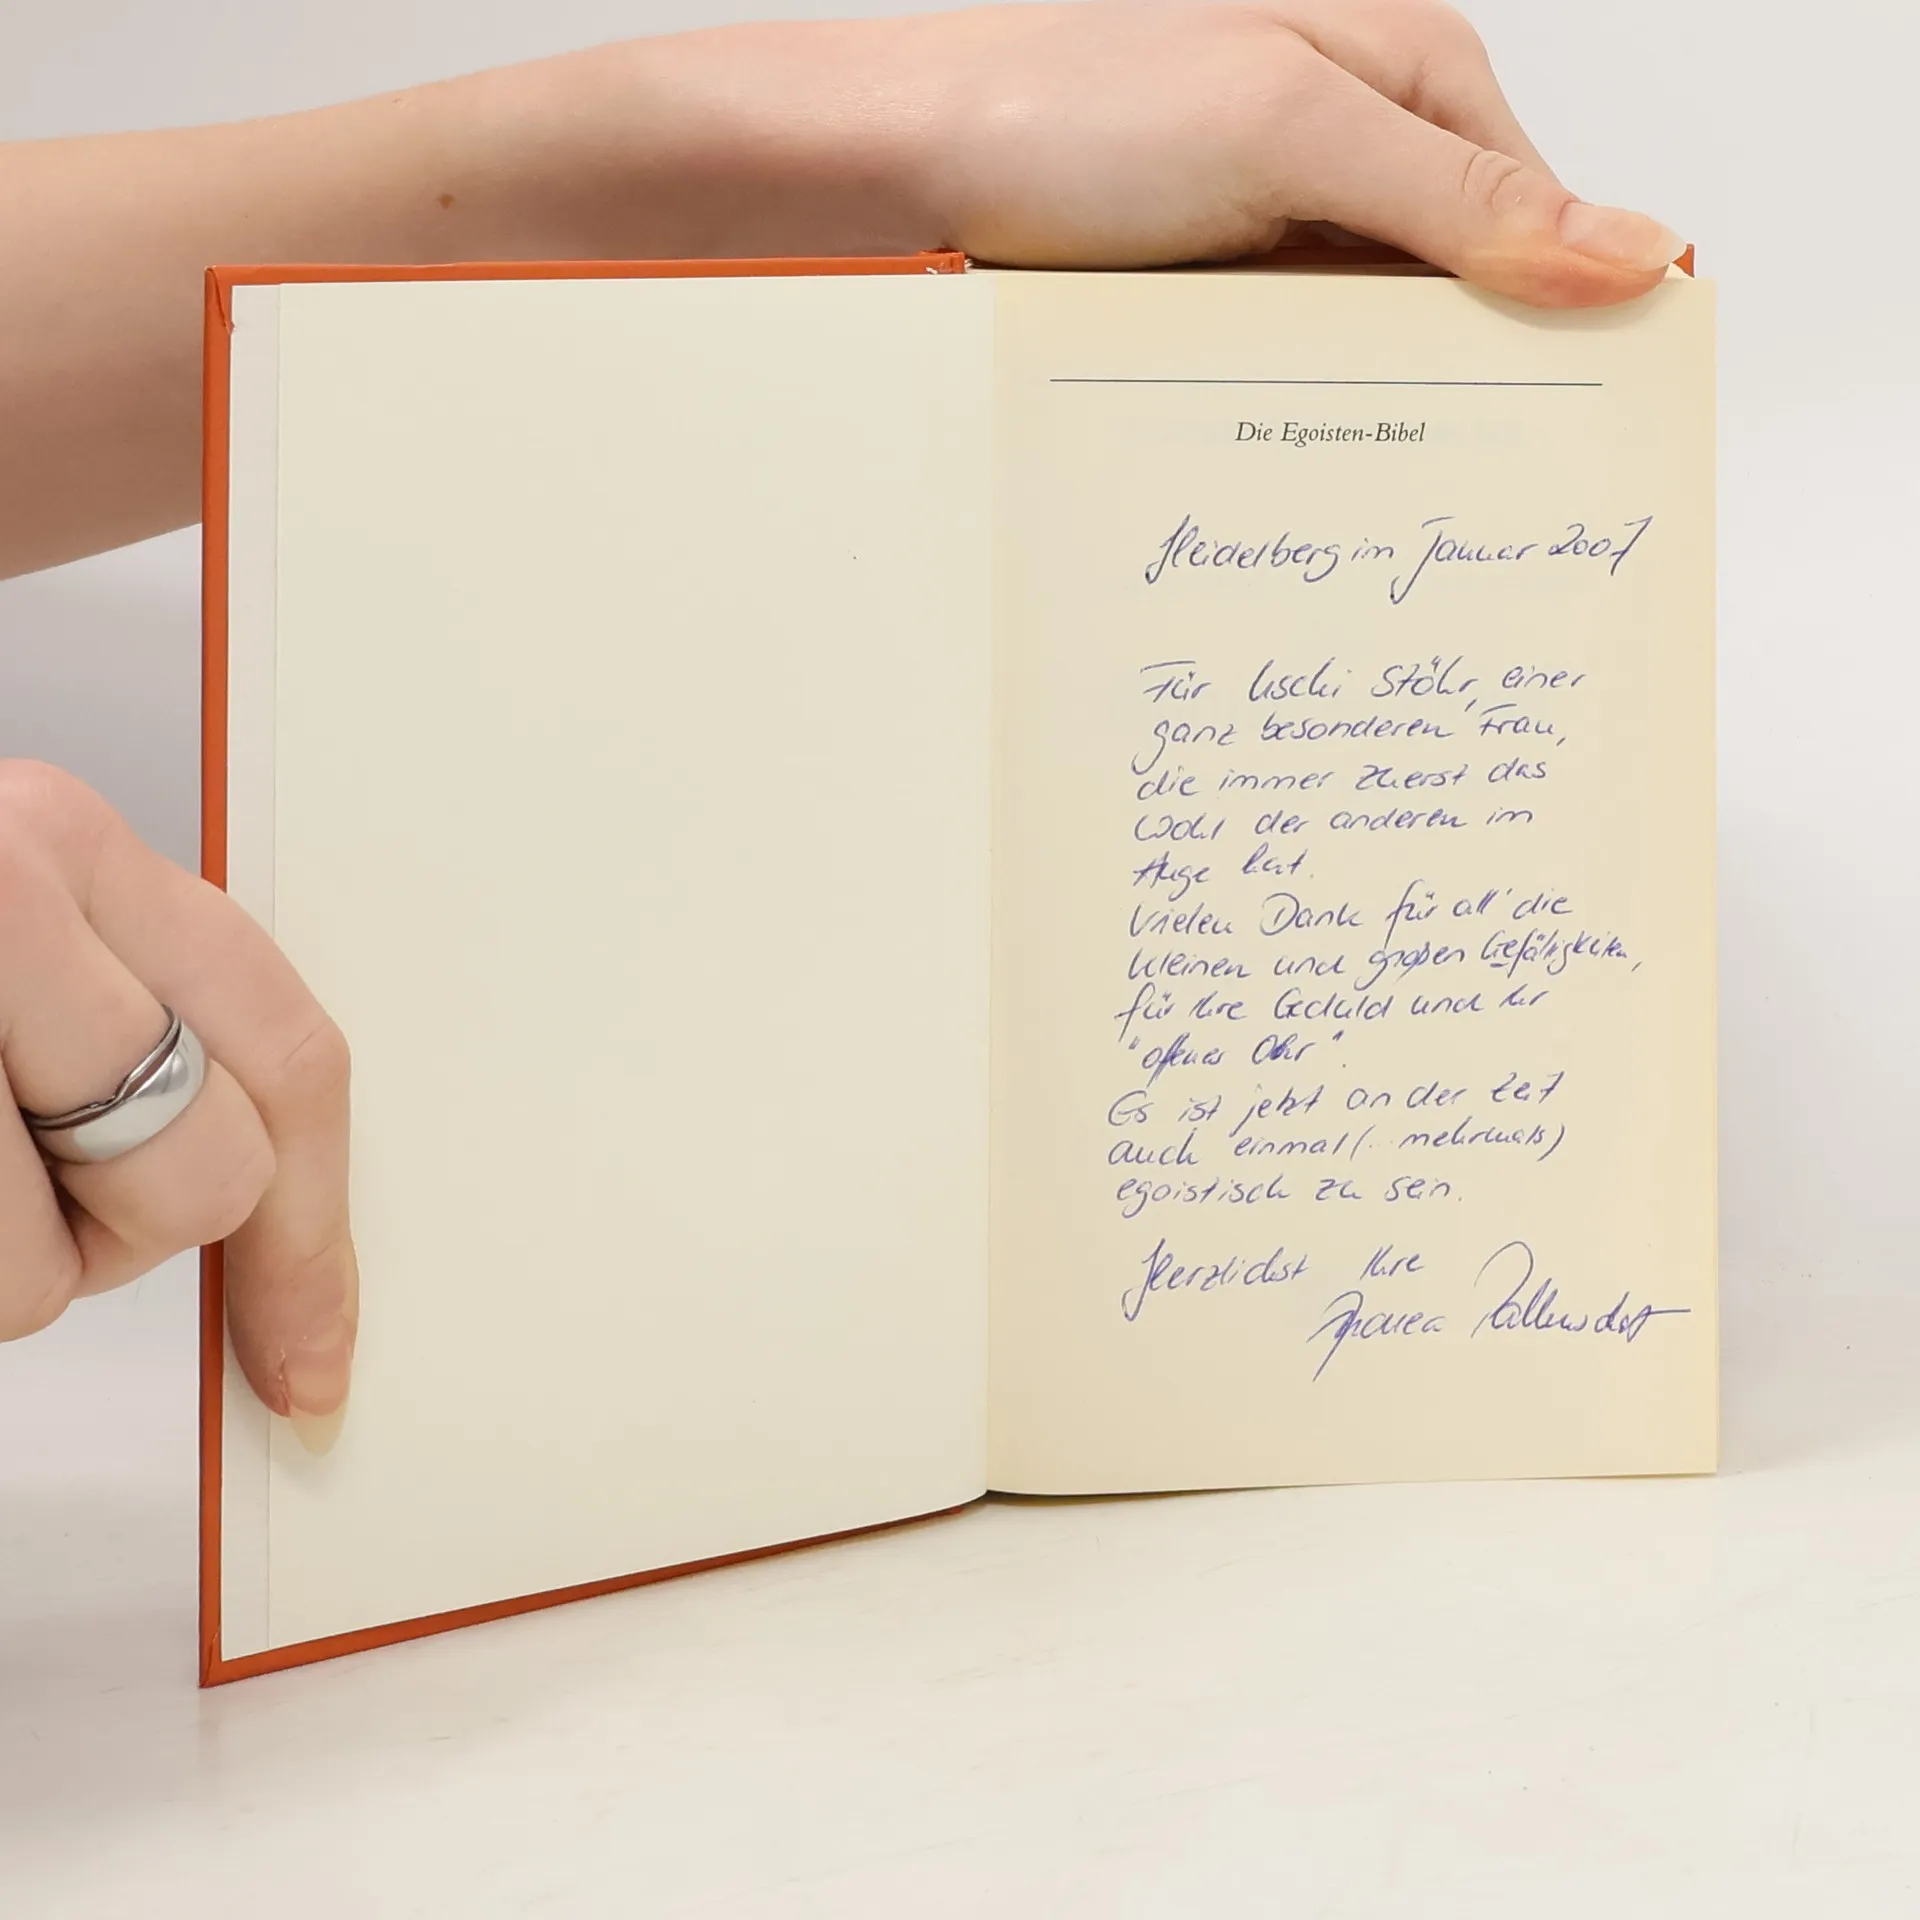 Die Egoisten-Bibel
Heidelberg im Januar 2007
Für Uschi Stöhr, einer
ganz besonderen Frau,
die immer zuerst das
Wohl der anderen im
Auge hat.
Vielen Dank für all' die
kleinen und großen Gefälligkeiten,
für Ihre Geduld und Ihr
"offenes Ohr".
Es ist jetzt an der Zeit
auch einmal (.. mehrmals)
egoistisch zu sein.
Herzlichst Ihre